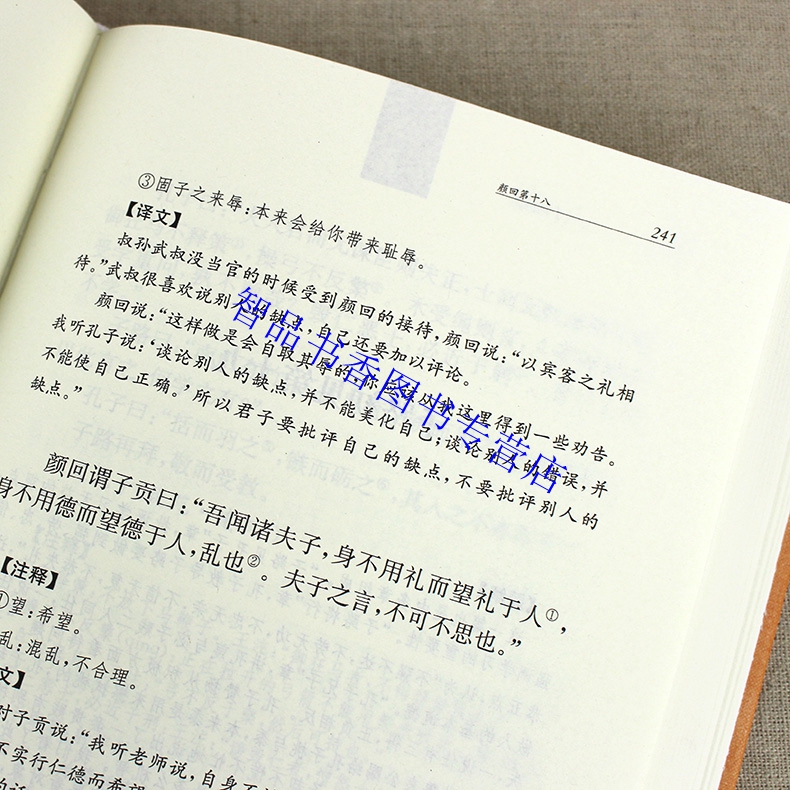 颜回第十八
241
③固子之来辱：本来会给你带来耻辱。
【译文】
叔孙武叔没当官的时候受到颜回的接待，颜回说：“以宾客之礼相
待。”武叔很喜欢说别人的缺点，自己还要加以评论。
颜回说：“这样做是会自取其辱的，你应该从我这里得到一些劝告。
我听孔子说：‘谈论别人的缺点，并不能美化自己；谈论别人的错误，并
不能使自己正确。’所以君子要批评自己的缺点，不要批评别人的
缺点。”
颜回谓子贡曰：“吾闻诸夫子，身不用礼而望礼于人①，
身不用德而望德于人，乱也②。夫子之言，不可不思也。”
【注释】
①望：希望。
乱：混乱，不合理。
文】
对子贡说：“我听老师说，自身不
不实行仁德而希望
智品书香图书专营店